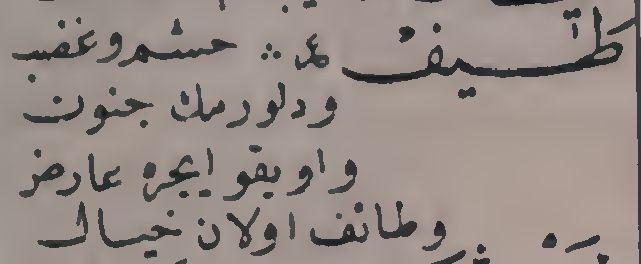 طيف ع خشم وغضب
ودلورمك جنون
واويقو ايچره عارض
وطائف اولان خيال